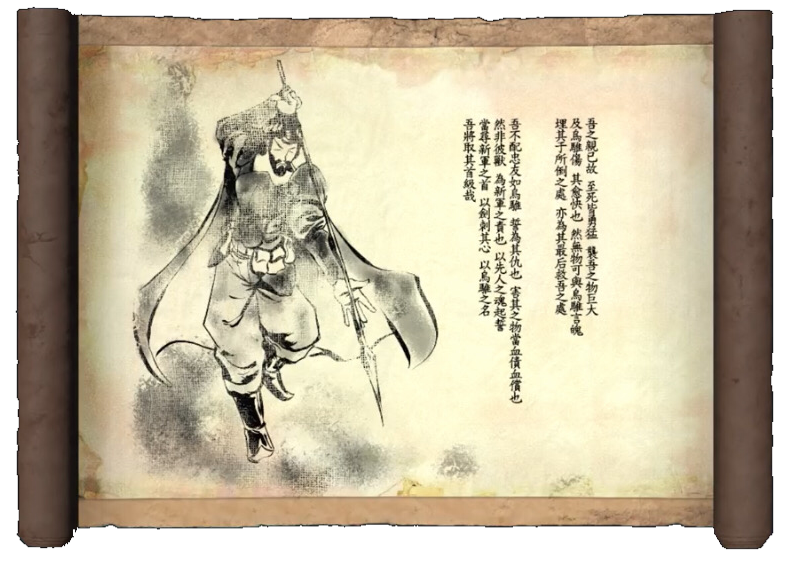 吾之親已故 至死皆勇猛 襲吾之物巨大
及烏騅傷 其愈快也 然無物可與烏騅言魄
埋其于所倒之處 亦為其最后救吾之處
吾不配忠友如烏騅 誓為其仇也 害其之物當血債血償也
然非彼獸 為新軍之責也 以先人之魂起誓
當尋新軍之首 以劍刺其心 以烏騅之名
吾將取其首級哉